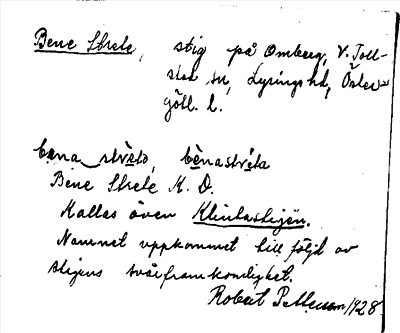 Bene Strete, stig på Omberg, V. Toll-
stad sn, Lysings hd, Öster-
götl. l.
bena strèto, bènastréta
Bene Strete K. D.
Kallas även Klintastigen.
Namnet uppkommet till följd av
stigens svårframkomlighet.
Robert Pettersson 1928